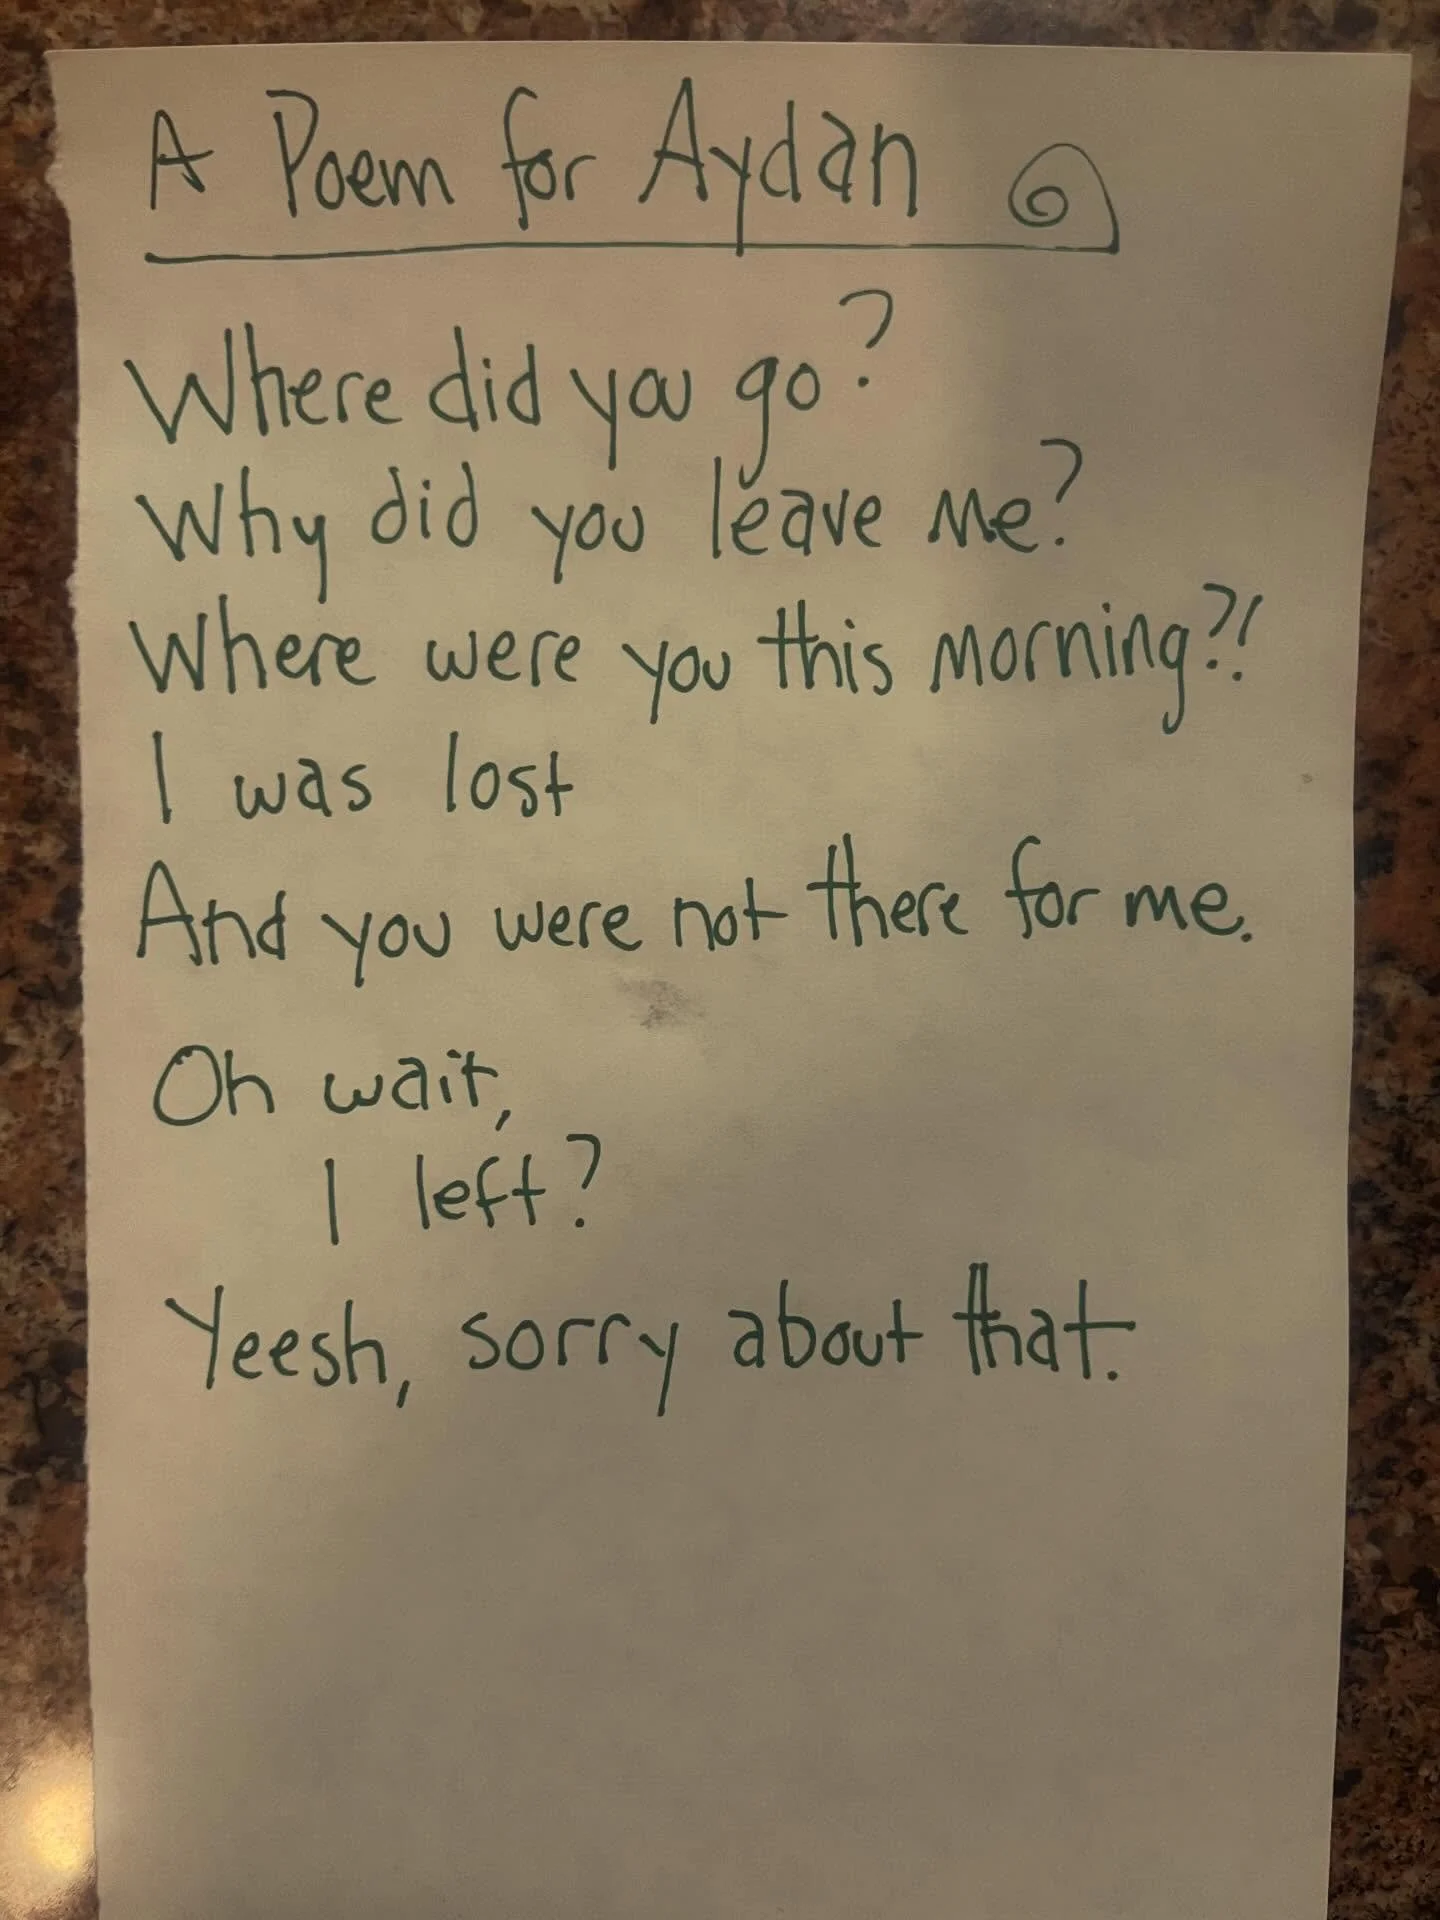 A Poem for Aydan
Where did you go?
Why did you leave me?
Where were you this morning?!
I was lost
And you were not there for me.
Oh wait,
I left?
Yeesh, sorry about that.